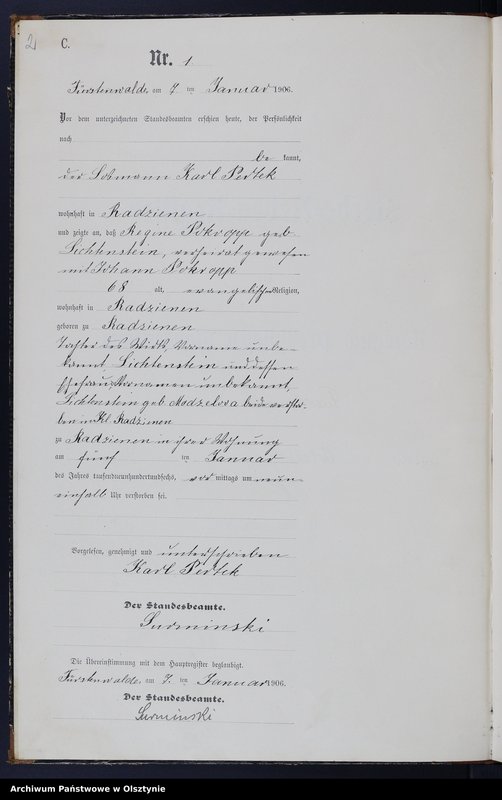 2
C.
Nr. 1
Fürstenwalde, am 7 ten Januar 1906.
Vor dem unterzeichneten Standesbeamten erschien heute, der Persönlichkeit
nach
be kannt,
der Losmann Karl Pertek
wohnhaft in Radzienen
und zeigte an, daß Regine Pokropp geb
Lichtenstein, verheirat gewesen
mit Johann Pokropp
68 alt, evangelischer Religion,
wohnhaft in Radzienen
geboren zu Radzienen
Tochter des Wirts, Vorname unbe-
kannt, Lichtenstein und dessen
Ehefrau Vornamen unbekannt,
Lichtenstein geb beide verstor-
ben in Kl Radzienen
zu Radzienen in ihrer Wohnung
am fünf ten Januar
des Jahres tausendneunhundertundsechs, vor mittags um neun
einhalb Uhr verstorben sei.
Vorgelesen, genehmigt und unterschrieben
Karl Pertek
Der Standesbeamte.
Surminski
Die Übereinstimmung mit dem Hauptregister beglaubigt.
Fürstenwalde, am 7. ten Januar 1906.
Der Standesbeamte.
Surminski
Archiwum Państwowe w Olsztynie